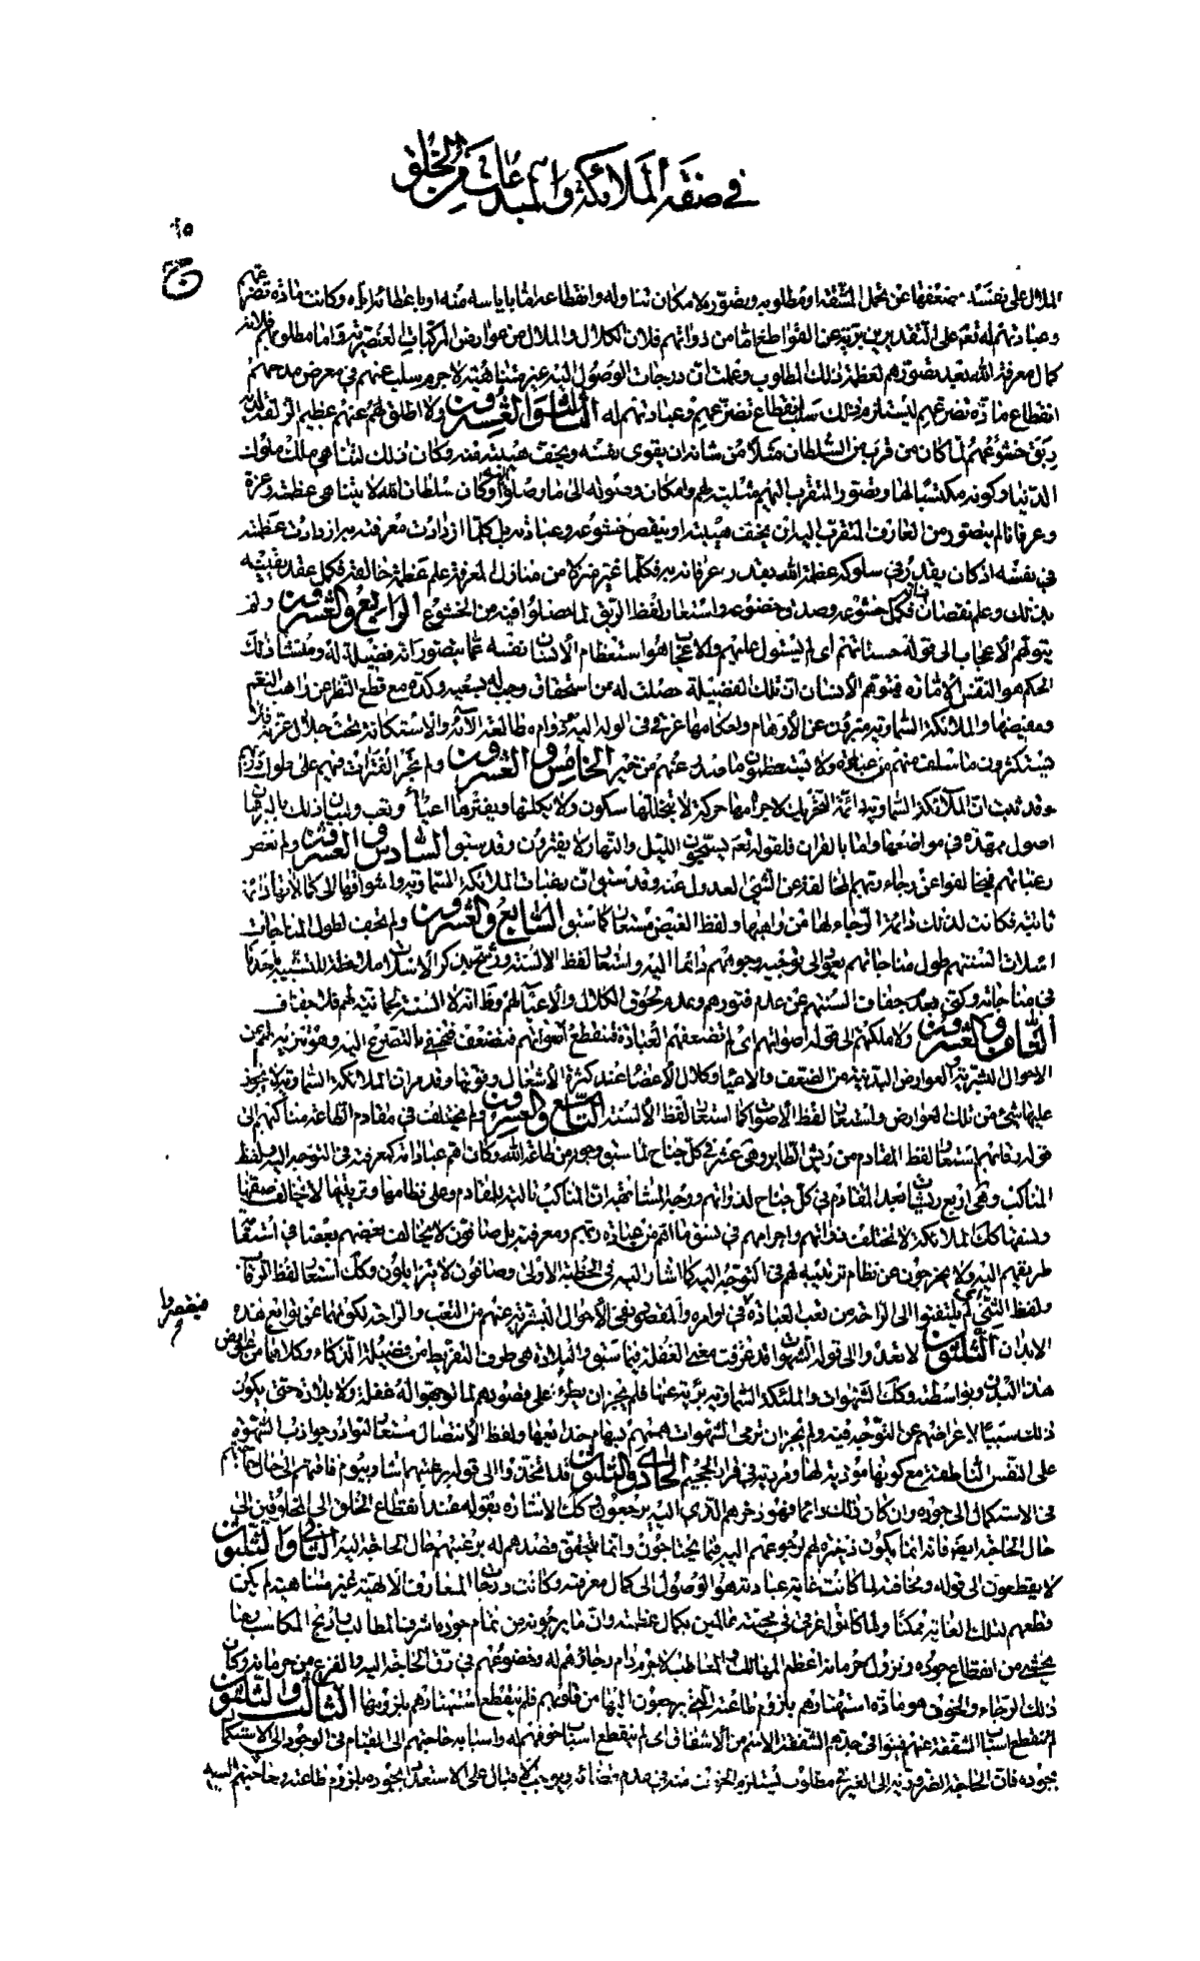 في صفة الملائكة والمبدعات من الخلق
٦٥
ج
الملال على نفسنا ضعفها عن تحمل المشقة او مطلوبه وبتصوره لامكان تناوله وانقطاعه امّا باياسه منه او باعطائه اياه وكانت مادة تضرعهم
وعبادتهم له تعم على التقديرين بريّة عن القواطع امّا من ذواتهم فلان الكلال والملال من عوارض المركبات العنصرية وامّا مطلوبهم فلانه
كمال معرفة الله بعد تصوّرهم لعظمة ذلك المطلوب وعلمت ان درجات الوصول اليه غير متناهية لاجرم سلب عنهم في معرض مدحهم
انقطاع مادة تضرعهم ليستلزم ذلك سلب انقطاع تضرعهم وعبادتهم له الثالث والعشرون ولا اطلق عنهم عظيم الزلفة
ربق خشوعهم لما كان من قرب من السلطان مثلا من شانه ان يقوى نفسه ويخف هيبته منه وكان ذلك لتناهي ملك ملوك
الدنيا وكونه مكتسبا لها وبتصور المتقرب اليهم مثلية لهم وامكان وصوله الى ما وصلوا اليه وكان سلطان الله لا يتناهى عظمة وعزة
وعرفانا لم يتصور من العارف المتقرب اليه ان يخف هيبته او ينقص خشوعه وعبادته بل كلما ازدادت معرفته به ازدادت عظمته
في نفسه اذ كان يقدر في سلوكه عظمة الله بقدر عرفانه به فكلما عبر منزلا من منازل المعرفة علم عظمة خالقه فكمل عقد يقينه
بذلك وعلم نقصان ذاته فكمل خشوعه وصدق خضوعه واستعار لفظ الربق لما حصلوا فيه من الخشوع الرابع والعشرون ولم
يتولهم الاعجاب الى قوله حسناتهم اى لم يستول عليهم والاعجاب هو استعظام الانسان نفسه عما يتصور انه فضيلة له ومنشأ ذلك
الحكم هو النفس الامارة فيتوهم الانسان ان تلك الفضيلة حصلت له عن استحقاق وجب له بسعيه وكده مع قطع النظر عن واهب النعم
ومفيضها والملائكة السماوية مبرؤن عن الاوهام واحكامها غرقى في الوله اليه ودوام مطالعة آلائه والاستكانة تحت جلال عزته فلا
يستكثرون ما سلف منهم من عبادة ولا يستعظمون ما صدر عنهم من خير الخامس والعشرون ولم تجر الفترات فيهم على طول دؤبهم
وقد ثبت ان الملائكة السماوية دائمة التحريك لاجرامها حركة لا يتخللها سكون ولا يكلها ويفترها اعياء وتعب ولبيان ذلك بالبرهان
اصول ممهدة في مواضعها وامّا بالقرآن فلقوله تعم يسبحون الليل والنهار لا يفترون وقد سبق السادس والعشرون ولم تغض
رغباتهم فيخالفوا عن رجاء ربهم المخالفة عن الشئ العدول عنه وقد سبق ان رغبات الملائكة السماوية واشواقها الى كمالاتها دائمة
ثابتة فكانت لذلك دائمة الرجاء لها من واهبها ولفظ الغيض مستعار كما سبق السابع والعشرون ولم تجف لطول المناجات
اسلات السنتهم طول مناجاتهم يعود الى توجيه وجوههم دائما اليه واستعار لفظ الالسنة ورشح بذكر الاسلات ملاحظة للتشبيه باحدنا
في مناجاته وكنى بعدم جفاف السنتهم عن عدم فتورهم وعدم لحوق الكلال والاعياء لهم وظ انه لا السنة لحمانية لهم فلا جفاف
الثامن والعشرون ولا ملكتهم الى قوله اصواتهم اى لم تضعفهم العبادة فتنقطع اصواتهم فتضعف فتخفى بالتضرع اليه وهو تنزيه لهم عن
الاحوال البشرية والعوارض البدنية من الضعف والاعياء وكلال الاعضاء عند كثرة الاشغال وقوتها وقد مر ان الملائكة السماوية لا يجوز
عليها شئ من تلك العوارض واستعار لفظ الاصوات كما استعار لفظ الالسنة التاسع والعشرون ولم يختلف في مقادم الطاعة مناكبهم الى
قوله رقابهم استعار لفظ المقادم من ريش الطاير وهي عشر في كل جناح لما سبق وجوبه من طاعة الله وكان اهم عباداته كمعرفته في التوجه اليه ولفظ
المناكب وهي اربع ريشات بعد المقادم في كل جناح لذواتهم ووجه المشابهة ان المناكب تالية للمقادم وعلى نظامها وترتيبها لا يخالف صفها
ونسقها كك الملائكة لا تختلف ذواتهم واجرامهم في نسق ما اهم من عبادة ربهم ومعرفته بل صافون لا يخالف بعضهم بعضا في استقامة
طريقهم اليه ولا يخرجون عن نظام ترتيبه لهم في التوجه اليه كما اشار اليه في الخطبة الاولى وصافون لا يتزايلون وكك استعار لفظ الرقاب
ولفظ الثنى اى لم يلتفتوا الى الراحة من تعب العبادة في اوامره والمقصود نفي الاحوال البشرية عنهم من التعب والراحة لكونهما عن توابع هذه
فيقصروا
الابدان الثلثون لا تعدو الى قوله الشهوات قد عرفت معنى الغفلة فيما سبق والبلادة هي طرف التفريط من فضيلة الذكاء وكلاهما من عوارض
هذا البدن وبواسطته وكك الشهوات والملئكة السماوية بريّة عنها فلم يجز ان يطرء على قصودهم لما توجهوا له غفلة ولا بلادة حتى يكون
ذلك سببا لاعراضهم عن التوجه فيه ولم يجز ان ترمى الشهوات هممهم بسهام خدائعها ولفظ الانتضال مستعار لتوارد جواذب الشهوة
على النفس الناطقة مع كونها موذية لها ومردية في قرار الجحيم الحادى والثلثون قد اتخذوا الى قوله برغبتهم اشار بيوم فاقتهم الى حال حاجتهم
في الاستكمال الى جوده وان كان ذلك دائما فهو ذخرهم الذى اليه يرجعون وكك الاشارة بقوله عند انقطاع الخلق الى المخلوقين الى
حال الحاجة ايضا فانه انما يكون ذخيرة لهم لرجوعهم اليه فيما يحتاجون وانما يتحقق قصدهم له برغبتهم حال الحاجة اليه الثانى والثلثون
لا يقطعون الى قوله ومخافته لما كانت غاية عبادته هو الوصول الى كمال معرفته وكانت درجات المعارف الالهية غير متناهية لم يكن
قطعهم لتلك الغاية ممكنا ولما كانوا غرقى في محبته عالمين بكمال عظمته وان ما يرجونه من تمام جوده اشرف المطالب واربح المكاسب وما
يخشى من انقطاع جوده ونزول حرمانه اعظم المهالك والمعاطب لاجرم دام رجاؤهم له وخضوعهم في رق الحاجة اليه والفزع من حرمانه وكان
ذلك الرجاء والخوف هو مادة استهتارهم بلزوم طاعته التي يرجعون اليها من قلوبهم فلم ينقطع استهتارهم بلزومها الثالث والثلثون
لم تنقطع اسباب الشفقة عنهم فينوا في جدهم الشفقة الاسم من الاشفاق اى لم تنقطع اسباب خوفهم له واسبابه حاجتهم الى القيام في الوجود الى الاستكمال
بجوده فان الحاجة الضرورية الى الغير في مطلوب يستلزم الخوف منه في عدم قضائه ويوجب الاقبال على الاستعداد لجوده بلزوم طاعته وحاجتهم اليه